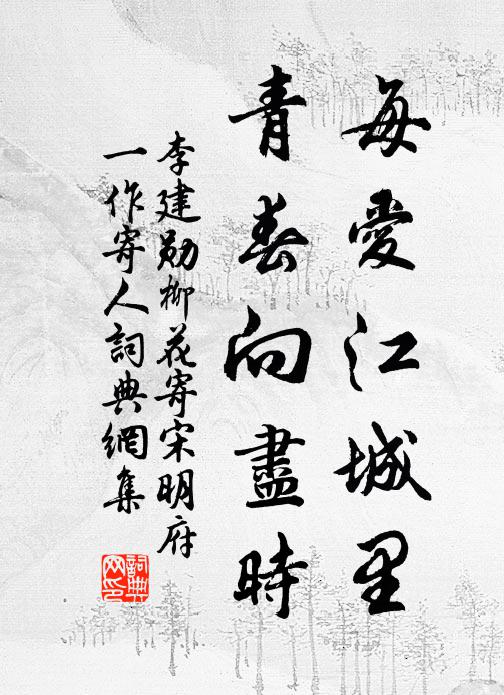 每愛江城里
青春向盡時
李建勛柳花寄宋明府
一作寄人詞典網集
詞典
网印